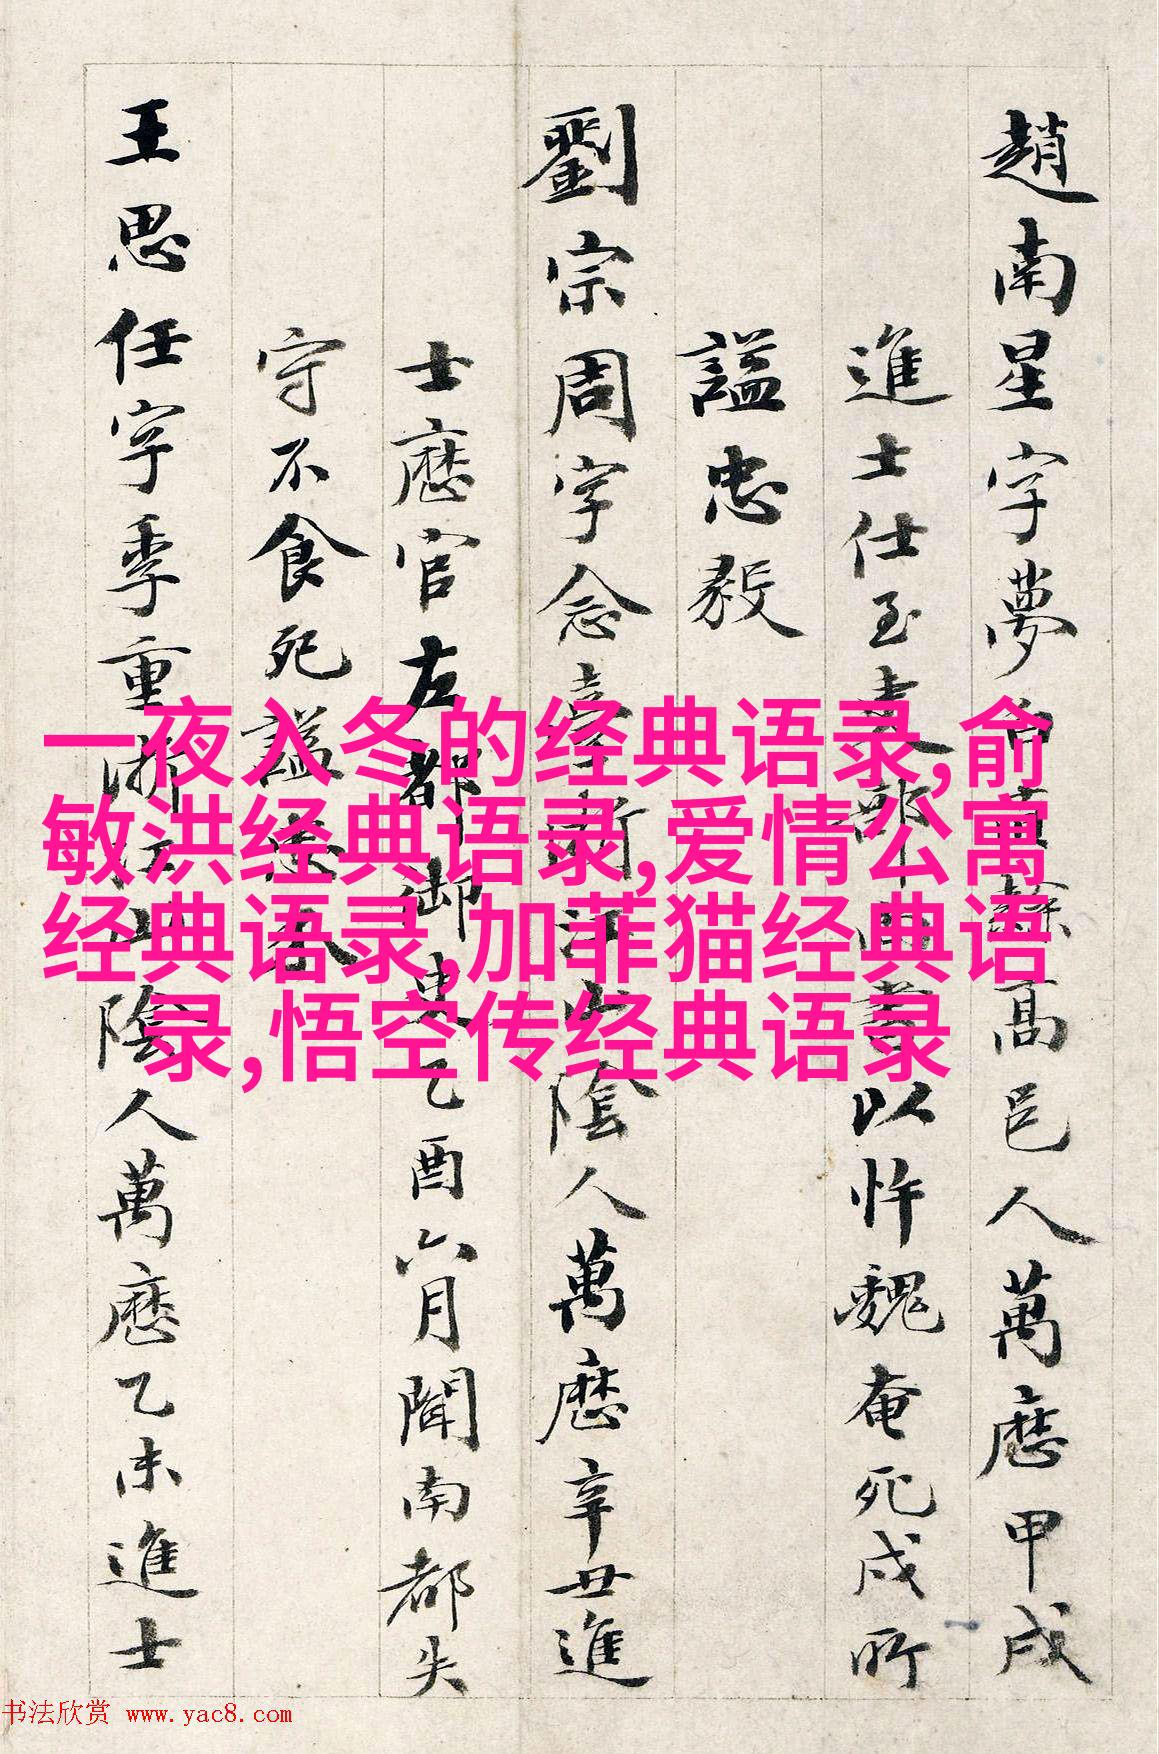 趙南星字夢白真隸高邑人萬曆甲戌
進士仕至吏部尚書以忤魏奄死戍所
謚忠毅
劉宗周字念臺浙江山陰人萬曆辛丑進
士歷官左都御史乙酉六月聞南都失
守不食死謚忠
王思任字季重浙江山陰人萬曆乙未進士
一夜入冬的经典语录,俞
敏洪经典语录,爱情公寓
经典语录,加菲猫经典语
录,悟空传经典语录
书法欣赏 www.yac8.com